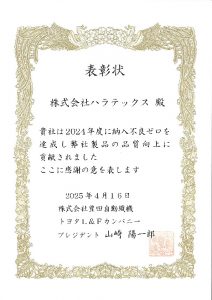 表彰状
株式会社ハラテックス 殿
貴社は2024年度に納入不良ゼロを
達成し弊社製品の品質向上に
貢献されました
ここに感謝の意を表します
2025年4月16日
株式会社豊田自動織機
トヨタL&Fカンパニー
プレジデント 山崎 陽一郎